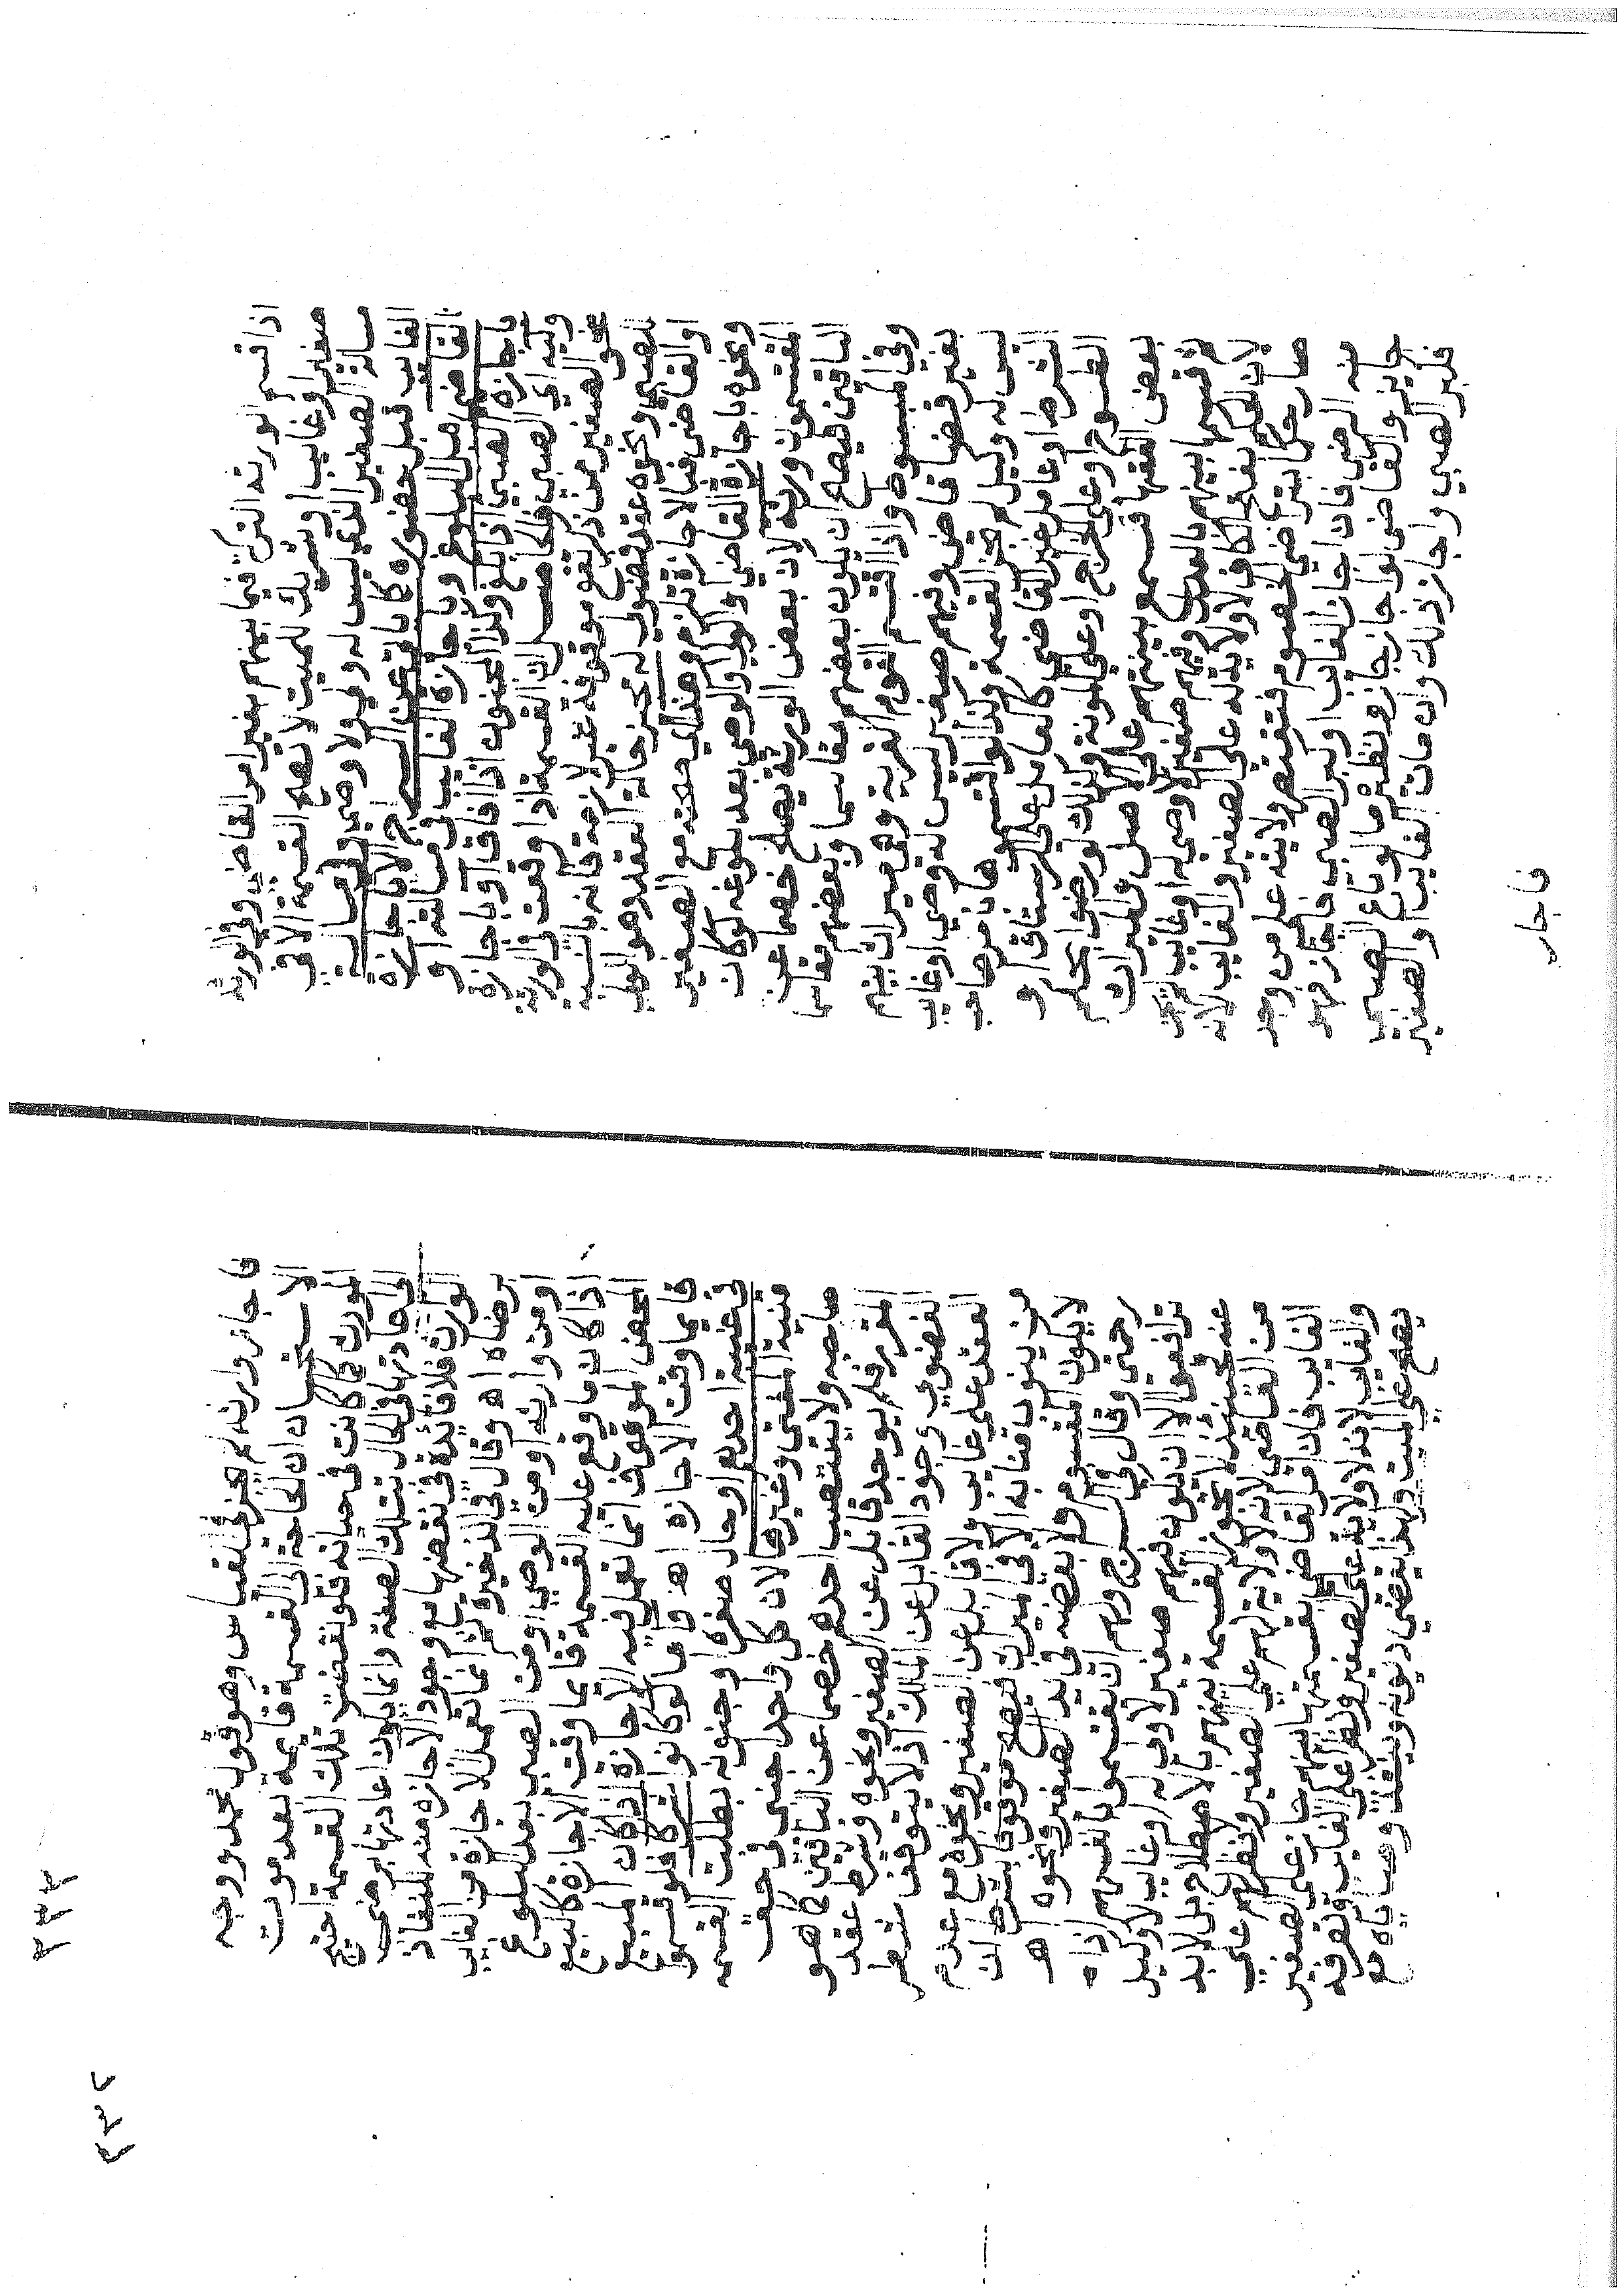 اذا قسم الورثة التركة فيما بينهم بغير امر القاضي وفي الورثة
صغير او غايب او شريك للميت لا تصح القسمة الا في
مسئلة الصغير الذي ليس له ولي ولا وصي
الغايب قبل حضوره الا باجازة
القاضي قبل البلوغ وباجازة الغايب او
باجازة الصبي اذا بلغ وكذا المجنون اذا افاق او باجازة
وليه اي الصبي ان القسمة اذا وقعت في الورثة
الصغير موقوفة غير لازمة فانه
الصبي ونحوه عقد فضولي له مجيز حالة العقد وهو الولي
او القاضي فبالاجازة تلزم وهذا اي صحته مع الصغير
ونحوه باجازة القاضي والولي والوصي بعد بلوغه لو كان
المقتسمون ورثة لان بعض الورثة يصلح خصما عن
الباقين فيصح ان يكون بعضهم مقاسما وبعضهم مقاسما
وفي المبسوط واذا اقتسم القوم القرية وهي ميراث بينهم
بغير قضا قاض وفيهم صغير ليس له وصي او غايب
ليس له وكيل لم تجز القسمة وكذا لو اقتسموها بامر صاحب
الشرط او عامل غير القاضي كالعامل على الرستاق او
الطسوج او على الخراج او على المونة وكذلك لو رضوا بحكم
بعض الفقها فسمع بينتهم على الاصل والميراث
ثم قسمها بينهم بالعدل وفيهم صغير لا وصي له او غايب
لان الحكم لا ولاية له على الصغير والغايب لانه
صار حكما بتراضي الخصوم فتقتصر ولايته على من وجد
منه الرضى فان اجاز الغايب او كبر الصبي فاجاز فهو
جايز والقاضي لو اجاز جاز نظير ما لو باع الصبي
فكبر الصبي واجاز ذلك وان مات الغايب او الصغير
فاجاز
فاجاز وارثه لم يجز في القياس وهو قول محمد ووجه
الاستحسان ان الحاجة الى القسمة قايمة بعد موت
المورث كما كانت في حياته فلو نقضت تلك القسمة احتيج
الى اعادتها في الحال بتلك الصفة وانما يكون اعادتها برضى
الوارث فلا فائدة في نقضها مع وجود الاجازة منه للنفاذ
برضاه اه وقال في الذخيرة ثم انما تعمل الاجازة من الغايب
او من وارثه او من الوصي او من الصبي بعد البلوغ
اذا كان ما وقع عليه القسمة قايما وقت الاجازة كالبيع
المحض الموقوف انما تعمل فيه الاجازة اذا كان المبيع
قايما وقت الاجازة اه فاما لو كانوا شركا فلو قسموا
في غيبة احدهم او حال صغره او جنونه بطلت القسمة
منية المفتي وغيرها لان كل واحد اجنبي في حق
صاحبه ولا ينتصب احدهم خصما عن الباقين كما هو
المقرر فلم يوجد قابل عن الصغير ونحوه وشرط عقد
الفضولي وجود القابل عن المالك اذ لا يتوقف شطر
العقد على غايب ولا قابل عن الصغير ونحوه مع عدم
من ينوب منابه الا في الميراث فيصح موقوفا بشرط ان
لا يكون المقسوم ولا بعضه في يد الصغير ونحوه اه
رحمتي وقال في الشرح ولهم ان يقتسموا بانفسهم اذا
تراضوا الا ان يكون فيهم صغير لا ولي له او غايب لا وكيل
عنه فحينئذ لا تجوز القسمة بينهم بالاصطلاح بل لا بد
من القاضي لانه لا ولاية لهم على الصغير ولا نظر لهم على
الغايب فان امر القاضي بقسمتها بينهم جاز على الصغير
والغايب لان له ولاية على الصغير ونظرا على الغايب وتصرفه
يصح على الميت ولهذا يقضي ديونه وينفذ وصاياه مع
٢٣٣
٢٣٤